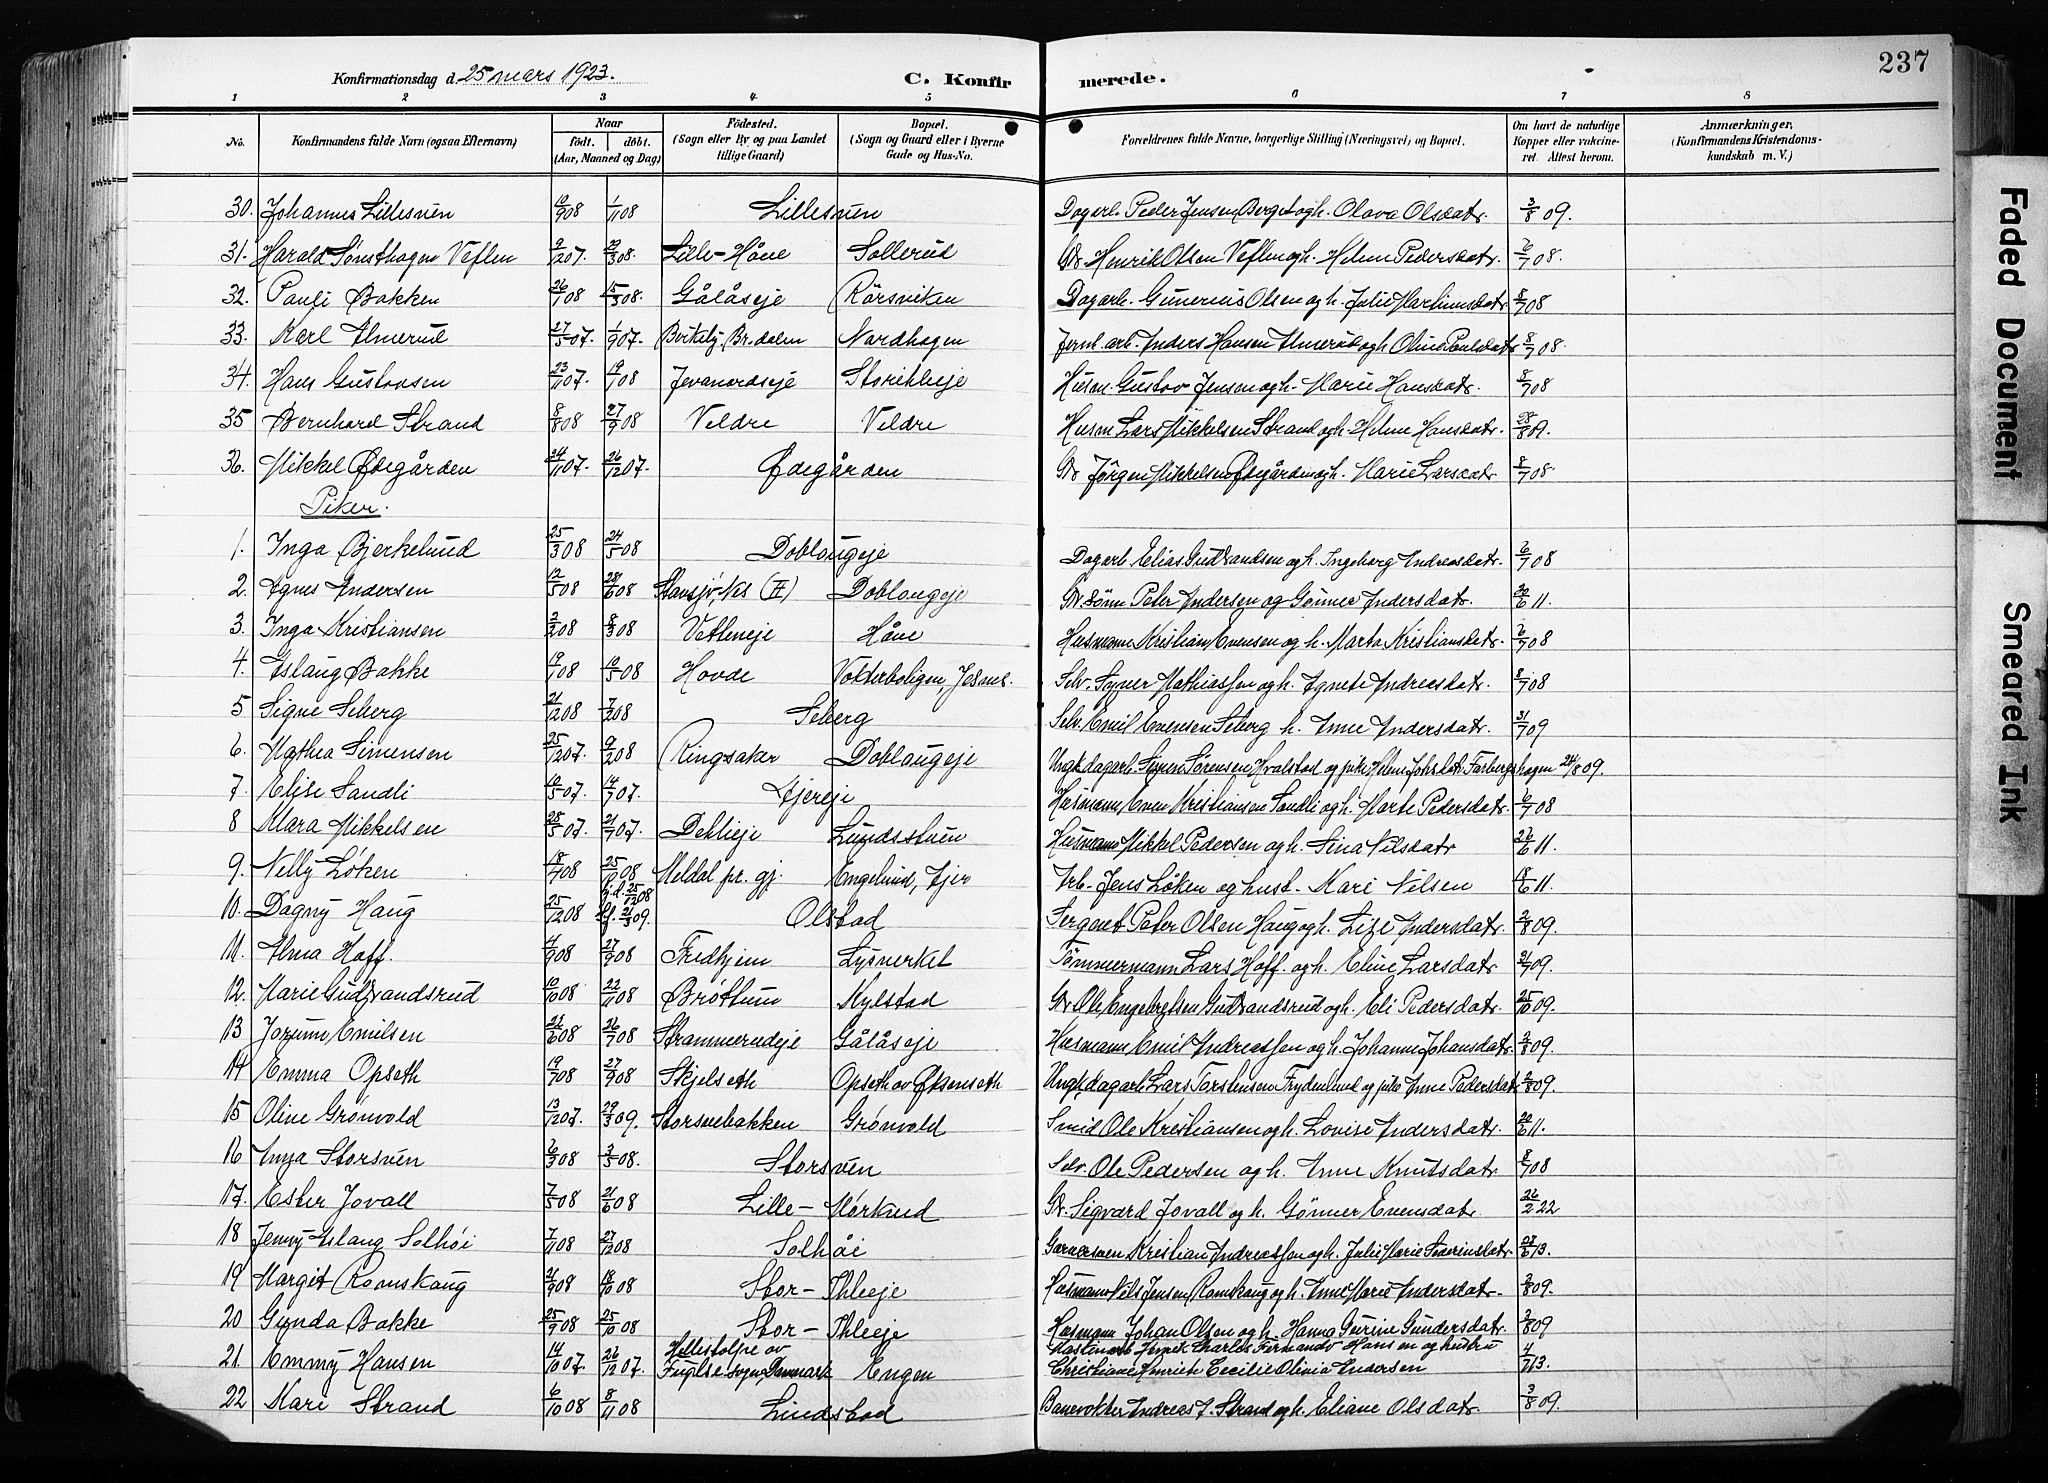 237
Konfirmationsdag d. 25 mars 1923. C. Konfirmerede.
1 2 3 4. 5 6 7 8
No. Konfirmandens fulde Navn (ogsaa Efternavn) Naar født. døbt. (Aar, Maaned og Dag) Fødested. (Sogn eller By og paa Landet tillige Gaard) Bopæl. (Sogn og Gaard eller i Byerne Gade og Hus-No. Forældrenes fulde Navne, borgerlige Stilling (Næringsvei) og Bopæl. Om havt de naturlige Kopper eller vakcineret. Attest herom. Anmærkninger. (Konfirmandens Kristendomskundskab m. V.)
30. Johannes Lillesveen 10/9 08 1/11 08 Lillesveen Dagarb. Peder Jensen Berget og h. Olava Olsdatr. 3/8 09.
31. Harald Tønsthagen Veflen 9/12 07. 29/3 08. Lille-Håve Sollerud Gbr. Henrik Olsen Veflen og h. Helene Pedersdatr. 6/7 08.
32. Pauli Bakken 26/1 08 15/3 08. Gålåseje Rørsviken Dagarb. Gunerius Olsen og h. Julie Martinusdatr 8/7 08
33. Karl Almerud 27/5 07. 1/9 07. Birkely, Br.dalen Nordhagen Jernb.arb. Anders Hansen Almerud og h. Oline Paulsdatr 8/7 08.
34. Hans Gustavsen 23/11 07. 19/1 08 Jevanordseje Storihleeje Husm. Gustav Jensen og h. Marie Hansdatr. 8/7 08
35 Bernhard Strand 8/8 08 27/9 08 Veldre Veldre Husm Lars Mikkelsen Strand og h. Helene Hansdatr. 28/8 09.
36. Mikkel Ødegården 24/11 07. 26/12 07. Ødegården Gbr Jørgen Mikkelsen Ødegården og h. Marie Larsdatr 8/7 08.
Piker.
1. Inga Bjerkelund 25/3 08 24/5 08 Doblougeje Dagarb. Elias Gudbrandsen og h. Ingeborg Andreasdatr. 6/7 08
2. Agnes Andersen 12/5 08 28/6 08 Stensjø, Nes (H) Doblougeje Gbr.sønn Peter Andersen og Gønner Andersdatr. 20/6 11.
3. Inga Kristiansen 2/2 08 8/3 08 Vetteneje Håve Husmann Kristian Evensen og h. Marta Kristiansdatr. 6/7 08
4. Aslaug Bakke 19/1 08 10/5 08 Hovde Vokterboligen, Jesnes. Selv. Syver Mathiassen og h. Agnete Andreasdatr. 8/7 08
5 Signe Seberg 21/12 08 7/2 08 Seberg Selv. Emil Evensen Seberg h. Anne Andersdatr. 31/7 09
6. Mathea Simensen 25/12 07. 9/2 08 Ringsaker Doblougeje Ungk.dagarb. Simen Sørensen Hvalstad og pike Helene Johsdtr. Farbergshagen 24/8 09.
7. Elise Sandli 10/5 07. 14/7 07. Tjereje Husmann Even Kristiansen Sandli og h. Marte Pedersdatr. 6/7 08
8 Klara Mikkelsen 28/5 07. 21/7 07. Dehlieje Lundsstuen Husmann Mikkel Pedersen og h. Sina Nilsdatr 26/6 11.
9. Nelly Løken 18/7 08 25/10 08 Meldal pr. gj. Engelund, Tjer Arb. Jens Løken og hust. Kari Nilsen 18/6 11.
10. Dagny Haug 25/12 08 hj.d. 25/12 08 st. 21/3 09. Olstad Sergent Peter Olsen Haug og h. Lize Andersdatr 2/8 09.
11. Alma Hoff. 4/9 08 27/9 08 Fredhjem Lysverket Tømmermann Lars Hoff. og h. Eline Larsdatr 21/7 09.
12. Marie Gudbrandsrud 10/10 08 22/11 08 Brøttum Kylstad Gbr Ole Engebretsen Gudbrandsrud og h. Eli Pedersdatr. 25/10 09.
13 Jorunn Emilsen 21/6 08 26/7 08 Strammerudeje Gålåseje Husmann Emil Andreassen og h. Johanne Johansdatr. 2/8 09.
14 Emma Opseth 19/7 08 27/9 08 Skjelseth Opseth av Øksenseth Ungk.dagarb. Lars Torstensen Frydenlund og pike Anne Pedersdatr. 2/8 09.
15 Oline Grønvold 13/12 07. 29/3 09. Storsvebakken Grønvold Smid Ole Kristiansen og h. Lovise Andersdatr. 20/6 11.
16 Anna Storsven 6/3 08 3/5 08. Storsven Selv. Ole Pedersen og h. Anne Knutsdatr. 8/7 08
17. Ester Jovall 7/5 08 21/6 08 Lille- Mørkved Gbr. Sigvard Jovall og h. Gønner Evensdatr. 26/2 22
18 Jenny Aslaug Solhøi 7/11 08 27/12 08 Solhøi Garversven Kristian Andreassen og h. Julie Marie Severinsdatr. 27/6 13.
19 Margit Romskaug 21/9 08 18/10 08 Stor- Ihleeje Husmann Nils Jensen Romskaug og h. Anne Marie Andersdatr. 2/8 09.
20 Gunda Bakke 25/9 08 25/10 08 Stor- Ihleeje Husmann Johan Olsen og h. Hanna Gurine Gundersdatr. 2/8 09
21. Emmy Hansen 14/10 07. 26/12 07. Hillestolpe av Fuglse sogn, Danmark Engen Charles Fernando Hansen og hustru Christiane Henriette Cecilie Olivia Andersen 4/7 13.
22 Kari Strand 6/10 08 8/11 08 Lindstad Banevokter Andreas J. Strand og h. Eliane Olsdatr. 3/8 09.
Faded Document
Smeared Ink